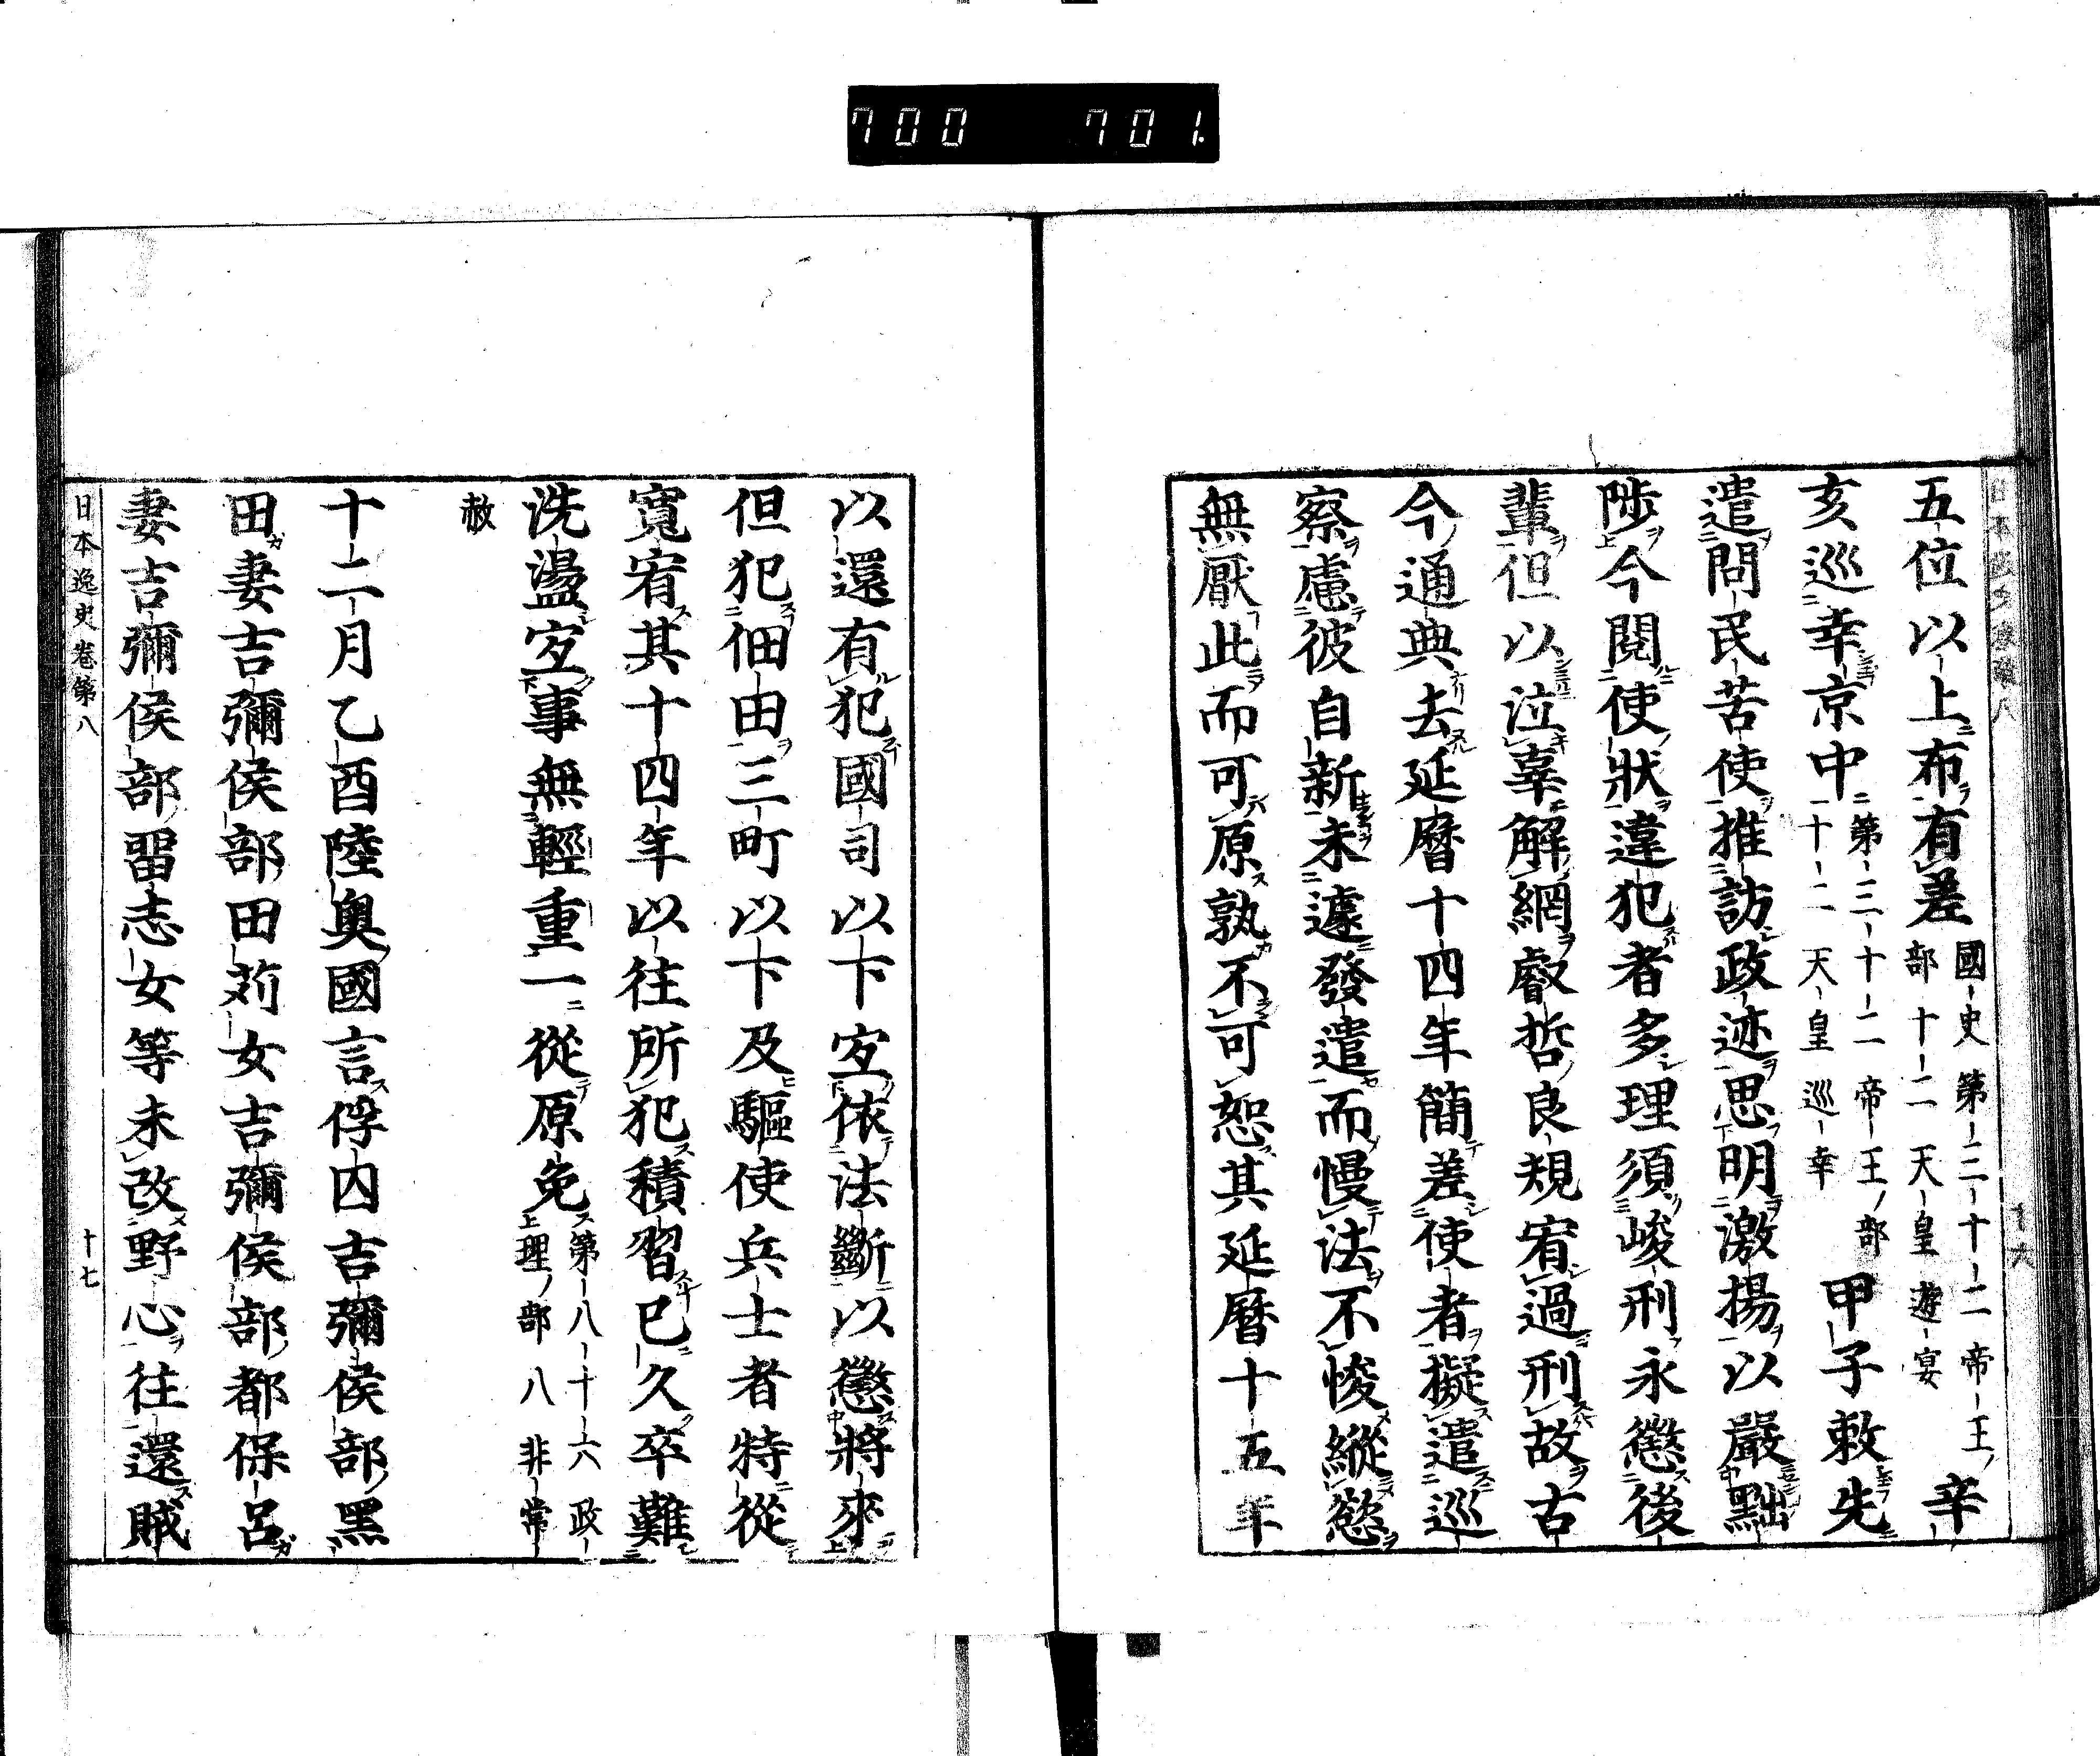 700 701
五位以上布有差國史第三十二帝王部十二天皇遊宴辛
亥巡幸京中第三十二帝王部十二天皇巡幸甲子敕先
遣問民苦使推訪政迹思明激揚以嚴黜
陟今閱使狀違犯者多理須峻刑永懲後
輩但以泣辜解網叡哲良規宥過刑故古
今通典去延曆十四年簡差使者擬遣巡
察慮彼自新未遽發遣而慢法不悛縱慾
無厭此而可原孰不可恕其延曆十五年
以還有犯國司以下㝎依法斷以懲將來
但犯佃田三町以下及驅使兵士者特從
寬宥其十四年以往所犯積習已久卒難
洗盪㝎事無輕重一從原免第八十六政理部八非常
赦
十二月乙酉陸奧國言俘囚吉彌侯部黑
田妻吉彌侯部田苅女吉彌侯部都保呂
妻吉彌侯部留志女等未改野心往還賊
日本逸史卷第八 十七